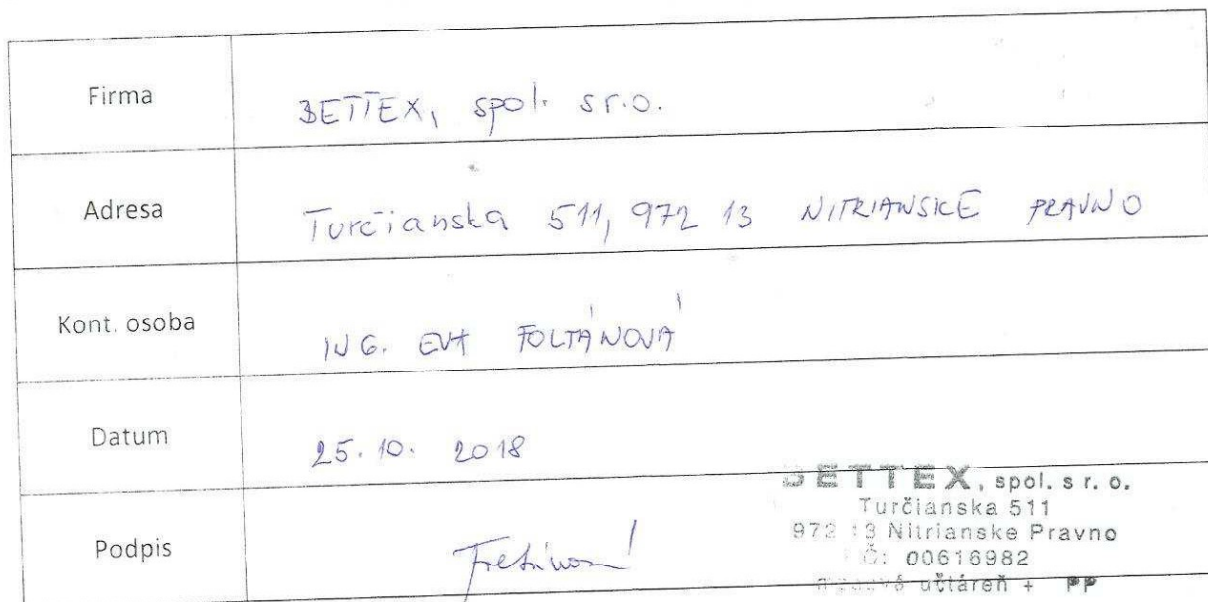 Firma BETTEX, spol. s r.o.
Adresa Turčianska 511, 972 13 NITRIANSKE PRAVNO
Kont. osoba ING. EVA FOLTÁNOVÁ
Datum 25. 10. 2018
Podpis
BETTEX, spol. s r. o.
Turčianska 511
972 13 Nitrianske Pravno
IČ: 00616982
učtáreň + PP